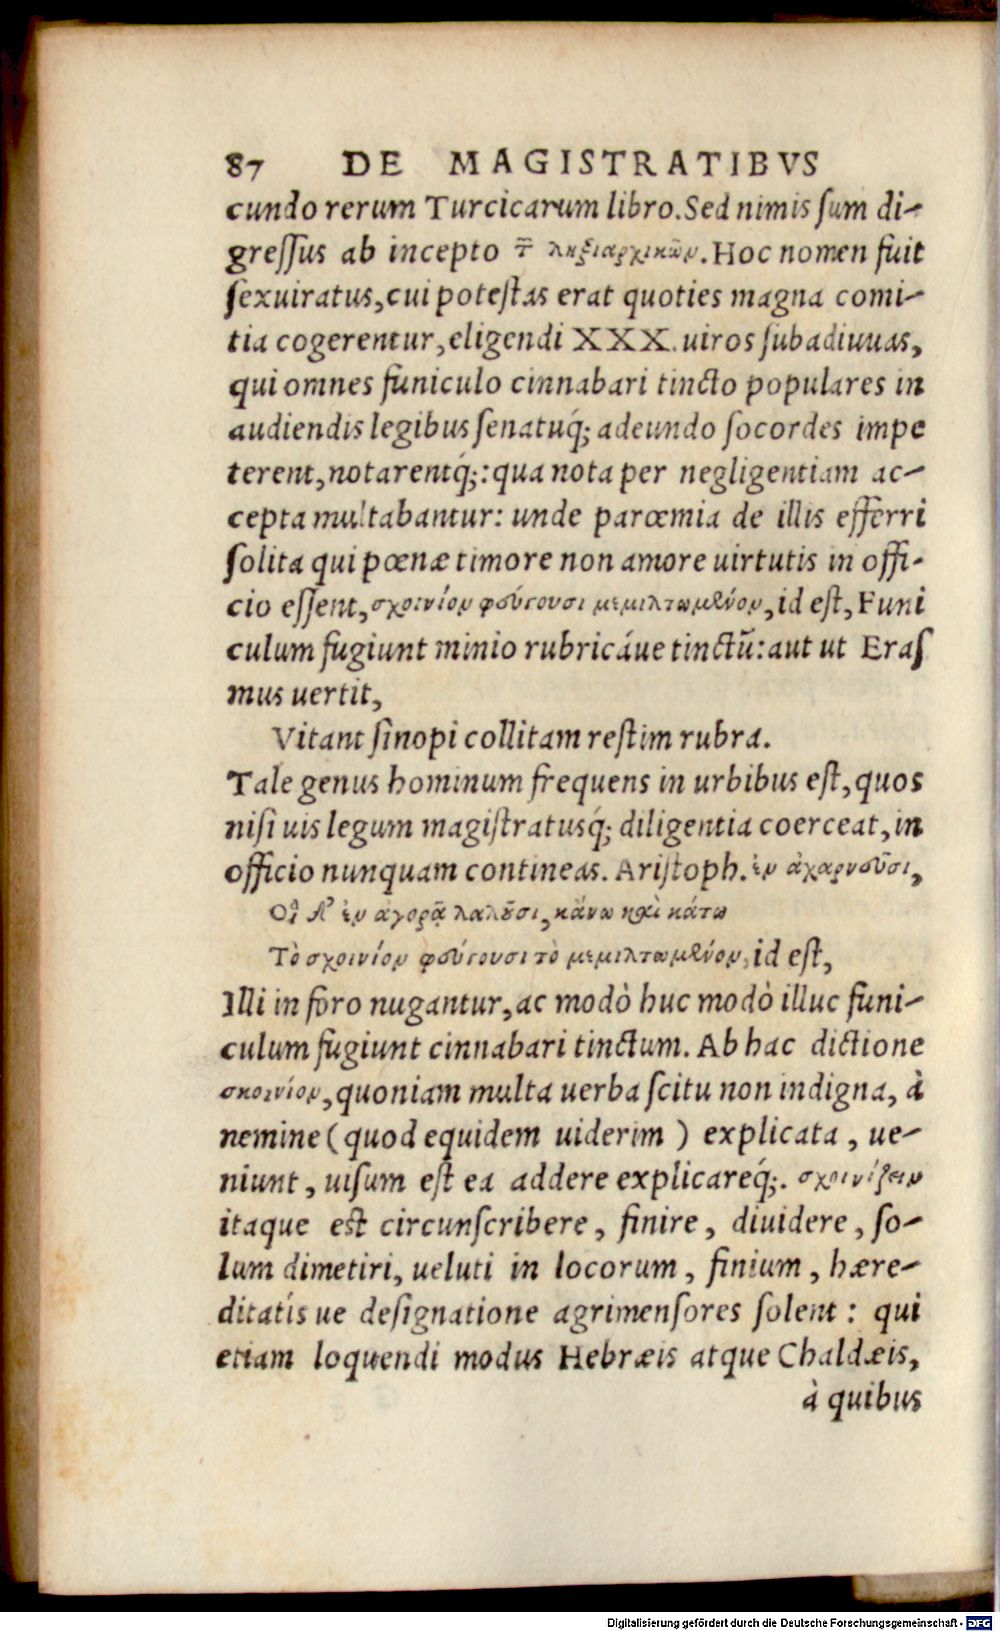 87 DE MAGISTRATIBVS
cundo rerum Turcicarum libro. Sed nimis ſum di-
greſſus ab incepto τ̃ ληξιαρχικῶν. Hoc nomen fuit
ſexuiratus, cui poteſtas erat quoties magna comi-
tia cogerentur, eligendi XXX. uiros ſubadiuuas,
qui omnes funiculo cinnabari tincto populares in
audiendis legibus ſenatuq́; adeundo ſocordes impe
terent, notarentq́;: qua nota per negligentiam ac-
cepta multabantur: unde parœmia de illis efferri
ſolita qui pœnæ timore non amore uirtutis in offi-
cio eſſent, σχοινίον φεύγουσι μεμιλτωμένον, id eſt, Funi
culum fugiunt minio rubricáue tinctũ: aut ut Eraſ
mus uertit,
Vitant ſinopi collitam reſtim rubra.
Tale genus hominum frequens in urbibus eſt, quos
niſi uis legum magiſtratusq́; diligentia coerceat, in
officio nunquam contineas. Ariſtoph. ἐν ἀχαρνεῦσι,
Οἱ δ' ἐν ἀγορᾷ λαλοῦσι, κἄνω καὶ κάτω
Τὸ σχοινίον φεύγουσι τὸ μεμιλτωμένον, id eſt,
Illi in foro nugantur, ac modò huc modò illuc funi-
culum fugiunt cinnabari tinctum. Ab hac dictione
σκοινίον, quoniam multa uerba ſcitu non indigna, à
nemine (quod equidem uiderim) explicata, ue-
niunt, uiſum eſt ea addere explicareq́;. σχοινίζειν
itaque eſt circunſcribere, finire, diuidere, ſo-
lum dimetiri, ueluti in locorum, finium, hære-
ditatís ue deſignatione agrimenſores ſolent: qui
etiam loquendi modus Hebræis atque Chaldæis,
à quibus
Digitalisierung gefördert durch die Deutsche Forschungsgemeinschaft - DFG